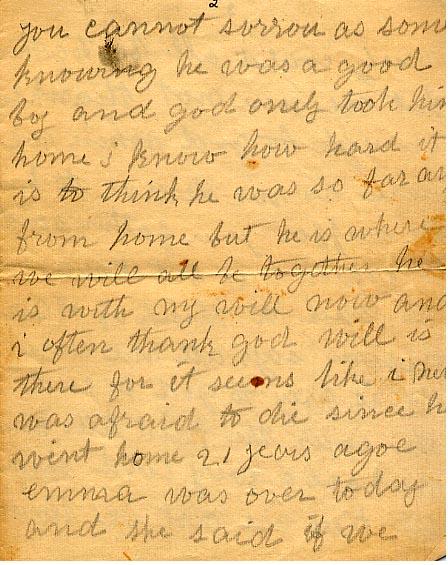 2
you cannot sorrou as som
knowing he was a good
boy and god onely took him
home i know how hard it
is to think he was so far aw
from home but he is where
we will all be together he
is with my will now and
i often thank god will is
there for it seems like i nev
was afraid to die since h
went home 21 years agoe
emma was over today
and she said if we